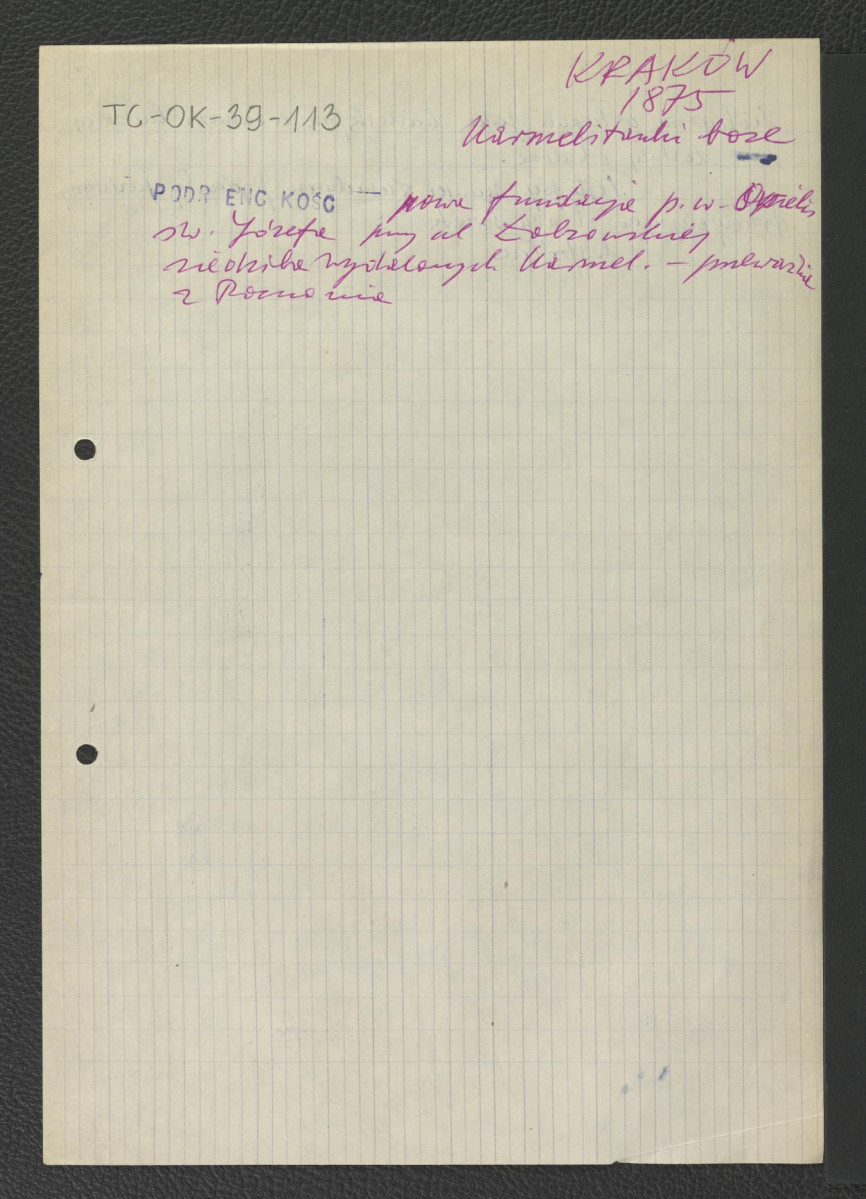 KRAKÓW
1875
TC-OK-39-113
Karmelitanki bose
PODR ENC KOŚC — nowa fundacja p.w. Opieki
św. Józefa przy ul Łobzowskiej
siedziba wydalonych Karmel. — przeważnie
z Poznania